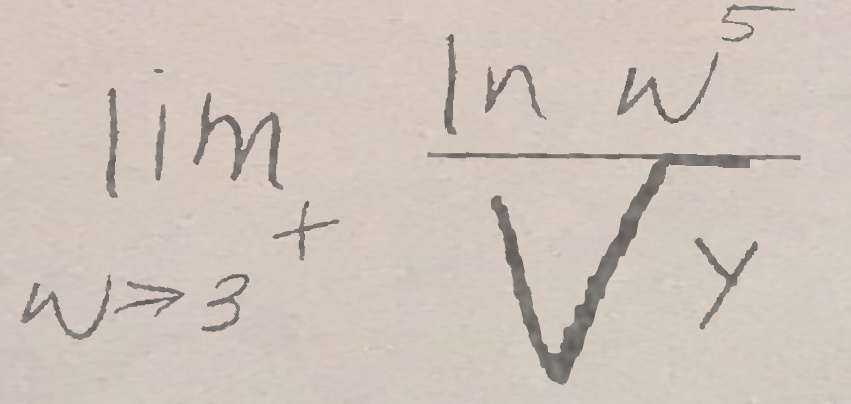 \lim_{w \to 3^+} \frac{\ln w^5}{\sqrt{y}}